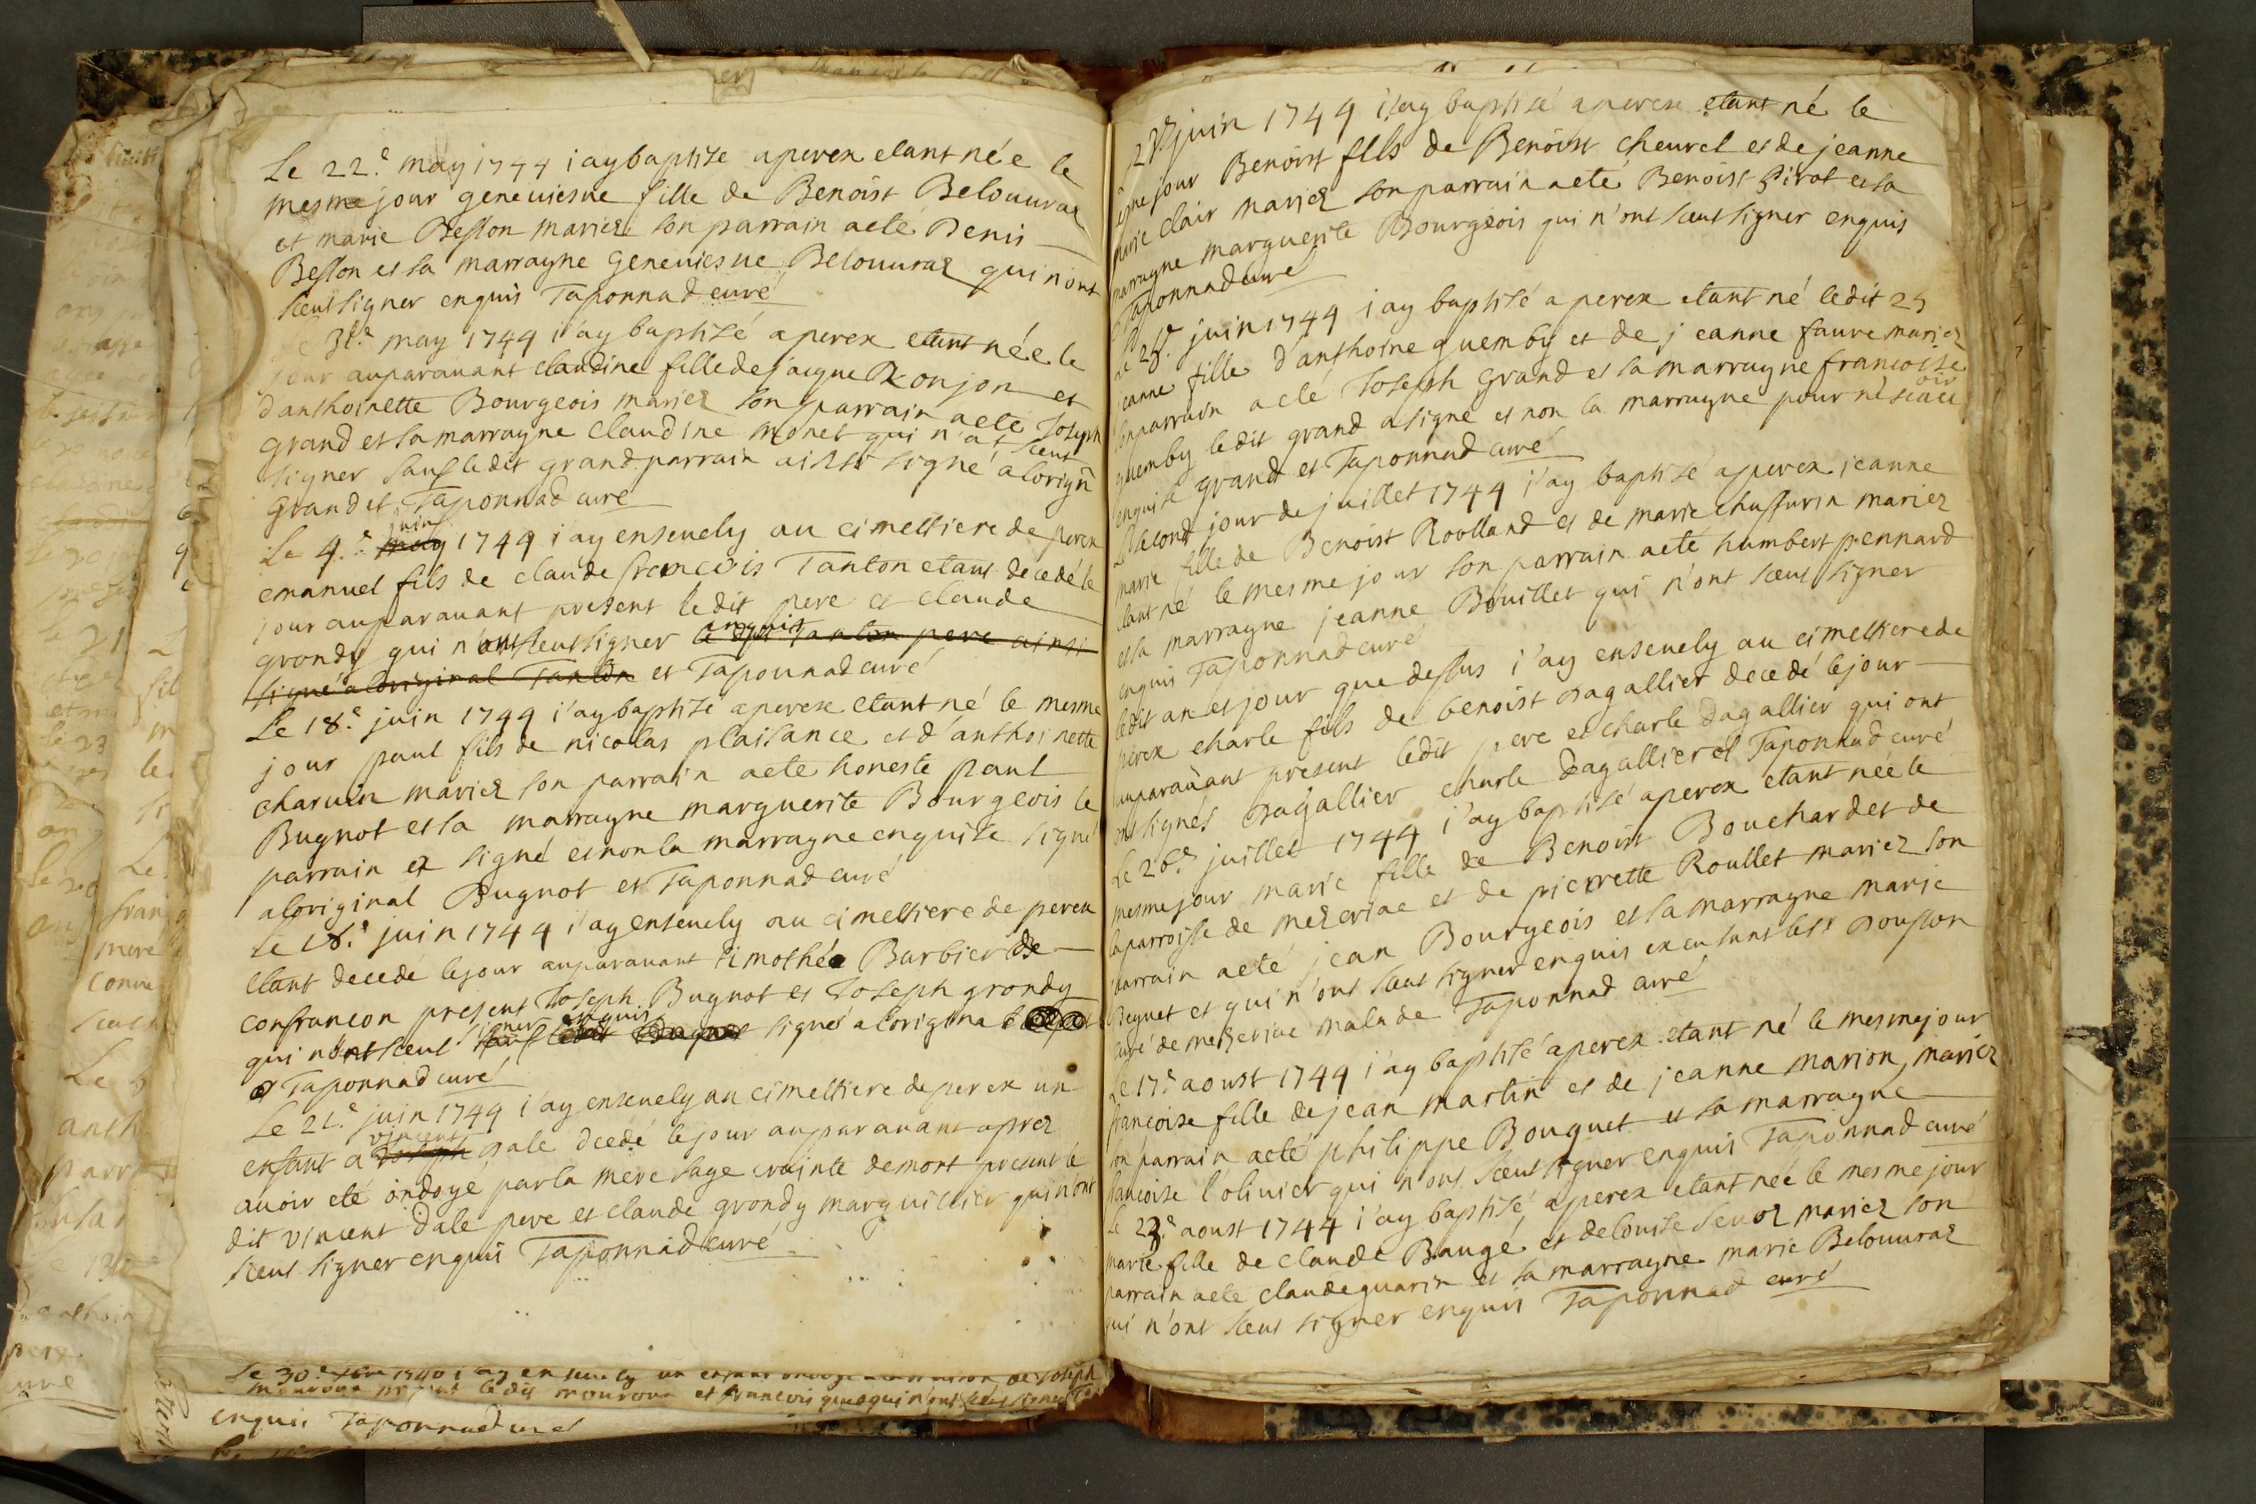 Le 22.e may 1744 i ay baptise a perex etant née le
mesme jour geneviesve fille de Benoist Belouvraz
et marie Besson mariez son parrain a eté Denis
Besson et la marrayne Geneviesve Belouvraz qui n'ont
sceut signer enquis Taponnad curé
may 1744 i'ay baptisé a perex etant née le
jour auparavant claudine fille de jaque Ronjon et
d'anthoinette Bourgeois mariez son parrain a eté Joseph
grand et sa marrayne claudine monet qui n'a sceut
signer sauf ledit grand parrain ainsi signé a lorigñ
Grand et Taponnad curé
Le 4.e may juin 1744 i'ay ensevely au cimettiere de perex
emanuel fils de claude francois Tanton etant decedé le
jour auparavant present ledit pere et claude
grondy qui n'ont sceut signer enquis le dit Tanton pere ainsi
signé a loriginal Tanton et Taponnad curé
Le 18.e juin 1744 i'ay baptizé a perex etant né le mesme
jour paul fils de nicolas plaisance et d'anthoinette
charvin mariez son parrain a eté honeste paul
Bugnot et sa marrayne marguerite Bourgeois le
parrain et signé et non la marrayne enquise signé
a loriginal Bugnot et Taponnad curé
le 18.e juin 1744 i'ay ensevely au cimettiere de perex
etant decedé le jour auparavant timothée Barbier de
confrancon present Joseph Bugnot et Joseph grondy
qui n'ont sceut signer enquis sauf ledit Bugnot signé a lorigina
et Taponnad curé
Le 21.e juin 1744 i'ay ensevely au cimettiere de perex un
enfant a vincent Joseph Dale dcedé le jour auparavant aprez
avoir eté ondoyé par la mere sage crainte de mort present le
dit vincent Dale pere et claude grondy marguillier qui n'ont
sceut signer enquis Taponnad curé
Le 30.e 1740 i'ay ensevely un enfant ondoyé de Joseph
present le dit et francois qui n'ont sceut signer
enquis Taponnad curé
juin 1744 i'ay baptisé a perex etant né le
mesme jour Benoist fils de Benoist chevrel et de jeanne
marie clair mariez son parrain a eté Benoist Pirat et sa
marrayne marguerite Bourgeois qui n'ont sceut signer enquis
Taponnad curé
Le juin 1744 i'ay baptisé a perex etant né ledit 25
jeanne fille d'anthoine guemby et de jeanne faure mariez
son parrain a eté Joseph Grand et sa marrayne francoise
guemby ledit grand a signé et non la marrayne pour ne scavoir
enquise grand et Taponnad curé
Le second jour de juillet 1744 i'ay baptisé a perex jeanne
marie fille de Benoist Roolland et de marie chassurin mariez
etant né le mesme jour son parrain a eté humbert pennard
et sa marrayne jeanne Bouillet qui n'ont sceut signer
enquis Taponnad curé
ledit an et jour que dessus i'ay ensevely au cimettiere de
perex charle fils de benoist Dagallier decedé le jour
auparavant present ledit pere et charle Dagallier qui ont
ont signés Dagallier charle Dagallier et Taponnad curé
Le 26.e juillet 1744 i'ay baptisé a perex etant née le
mesme jour marie fille de Benoist Bouchardet de
la parroisse de mezeriac et de pierrette Roullet mariez son
parrain a eté jean Bourgeois et sa marrayne marie
Beguet et qui n'ont sceut signer enquis excusant le sr Dousson
curé de mezeriac malade Taponnad curé
Le 17.e aoust 1744 i'ay baptisé a perex etant né le mesme jour
francoise fille de jean martin et de jeanne marion mariez
son parrain a eté philippe Bouquet et sa marrayne
francoise l'olivier qui n'ont sceut signer enquis Taponnad curé
Le 23.e aoust 1744 i'ay baptisé a perex etant née le mesme jour
marie fille de claude Baugé et de louise servoz mariez son
parrain a eté claude guarin et sa marrayne marie Belouvraz
qui n'ont sceut signer enquis Taponnad curé